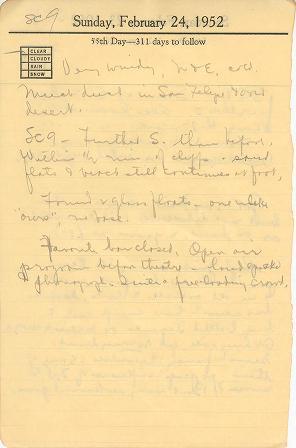 SC9
Sunday, February 24, 1952
55th Day—311 days to follow
CLEAR
CLOUDY
RAIN
SNOW
Very windy, N & E, cold.
Much dust in San Felipe
desert.
SC9 - Further S. than before.
Within of cliffs - sand
flats & beach still continues at foot.
Found 2 glass floats - one with
no base.
Favorite bar closed. Open air
program before theatre - loud
phonograph. Quite a crowd.